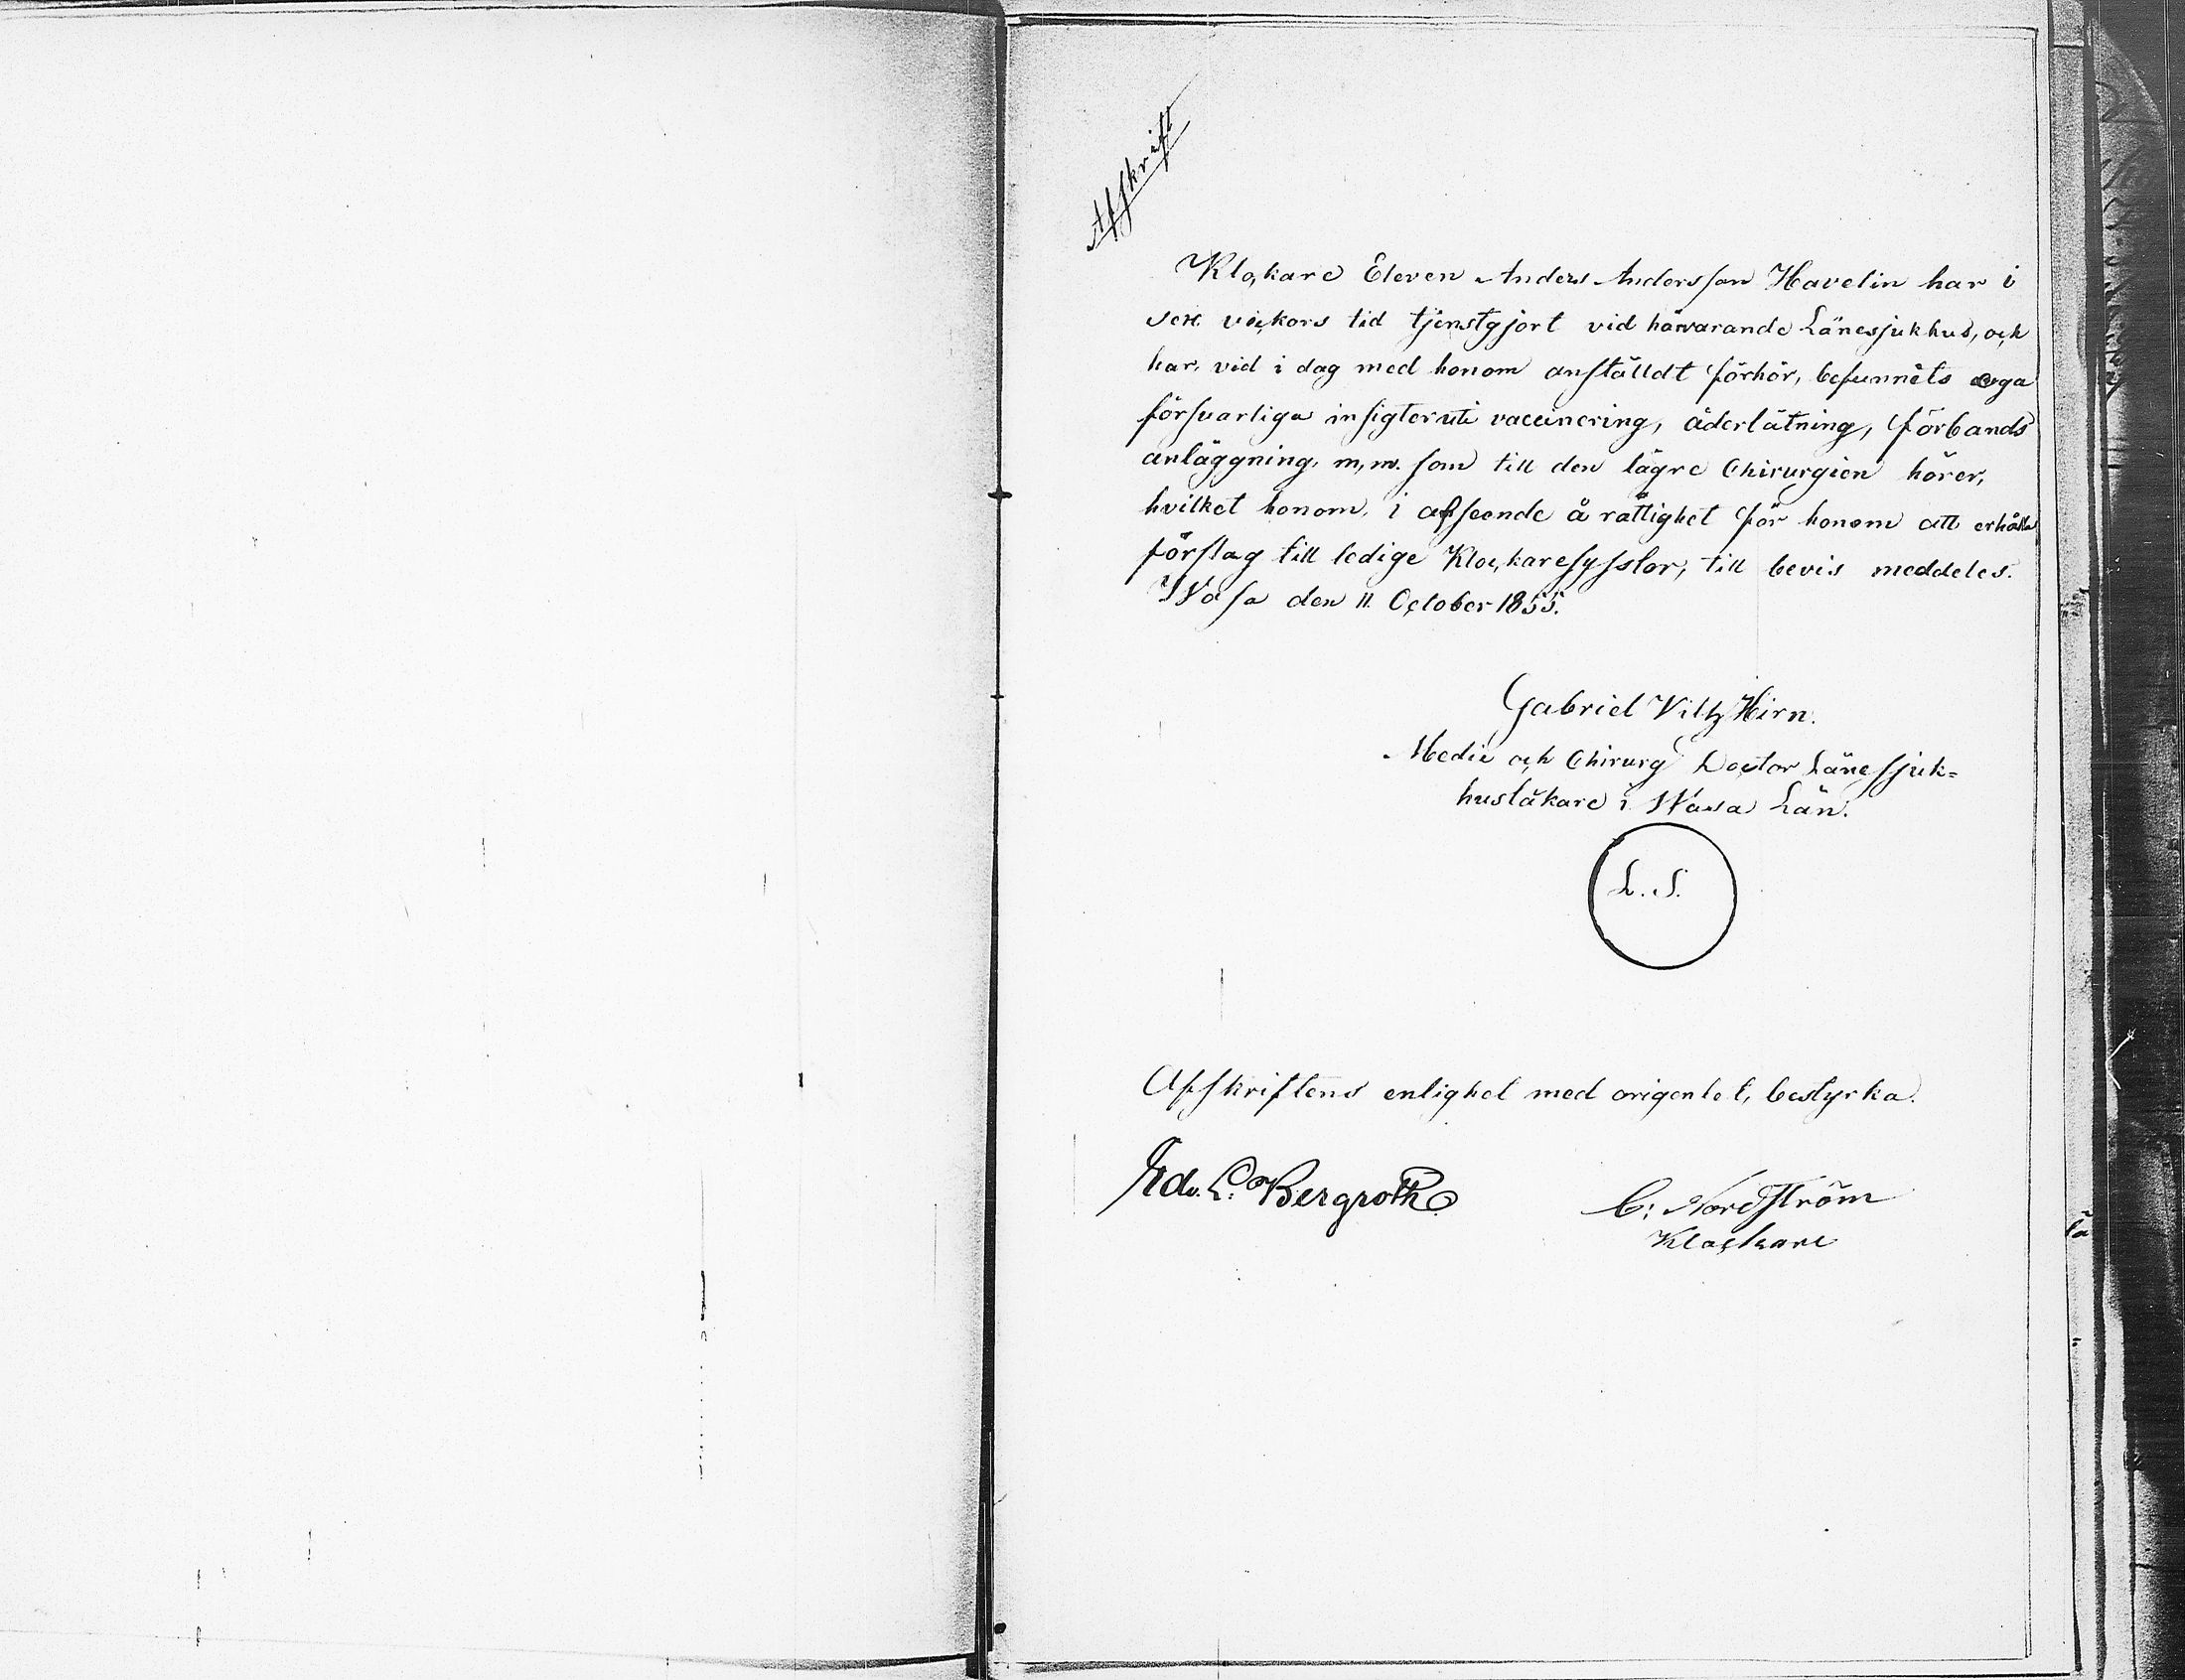 Afskrift
Klockare Eleven Anders Andersson Havelin har i
sex veckors tid tjenstgjort vid härvarande Länesjukhus, och
har, vid i dag med honom anstäldt förhör, befunnets äga
försvarliga insigter uti vaccinering, åderlåtning, förbands
anläggning, m, m. som till den lägre Chirurgien hörer,
hvilket honom, i afseende å rättighet för honom att erhålla
förslag till ledige Klockaresysslor, till bevis meddeles.
Wasa den 11 October 1855.
Gabriel Hirn.
Medic och Chirurg Doctor Länessjuk=
husläkare i Wasa Län.
L. S.
Afskriftens enlighet med origenlet, bestyrka.
Edv. L. Bergroth
C: Nordström
Klockare